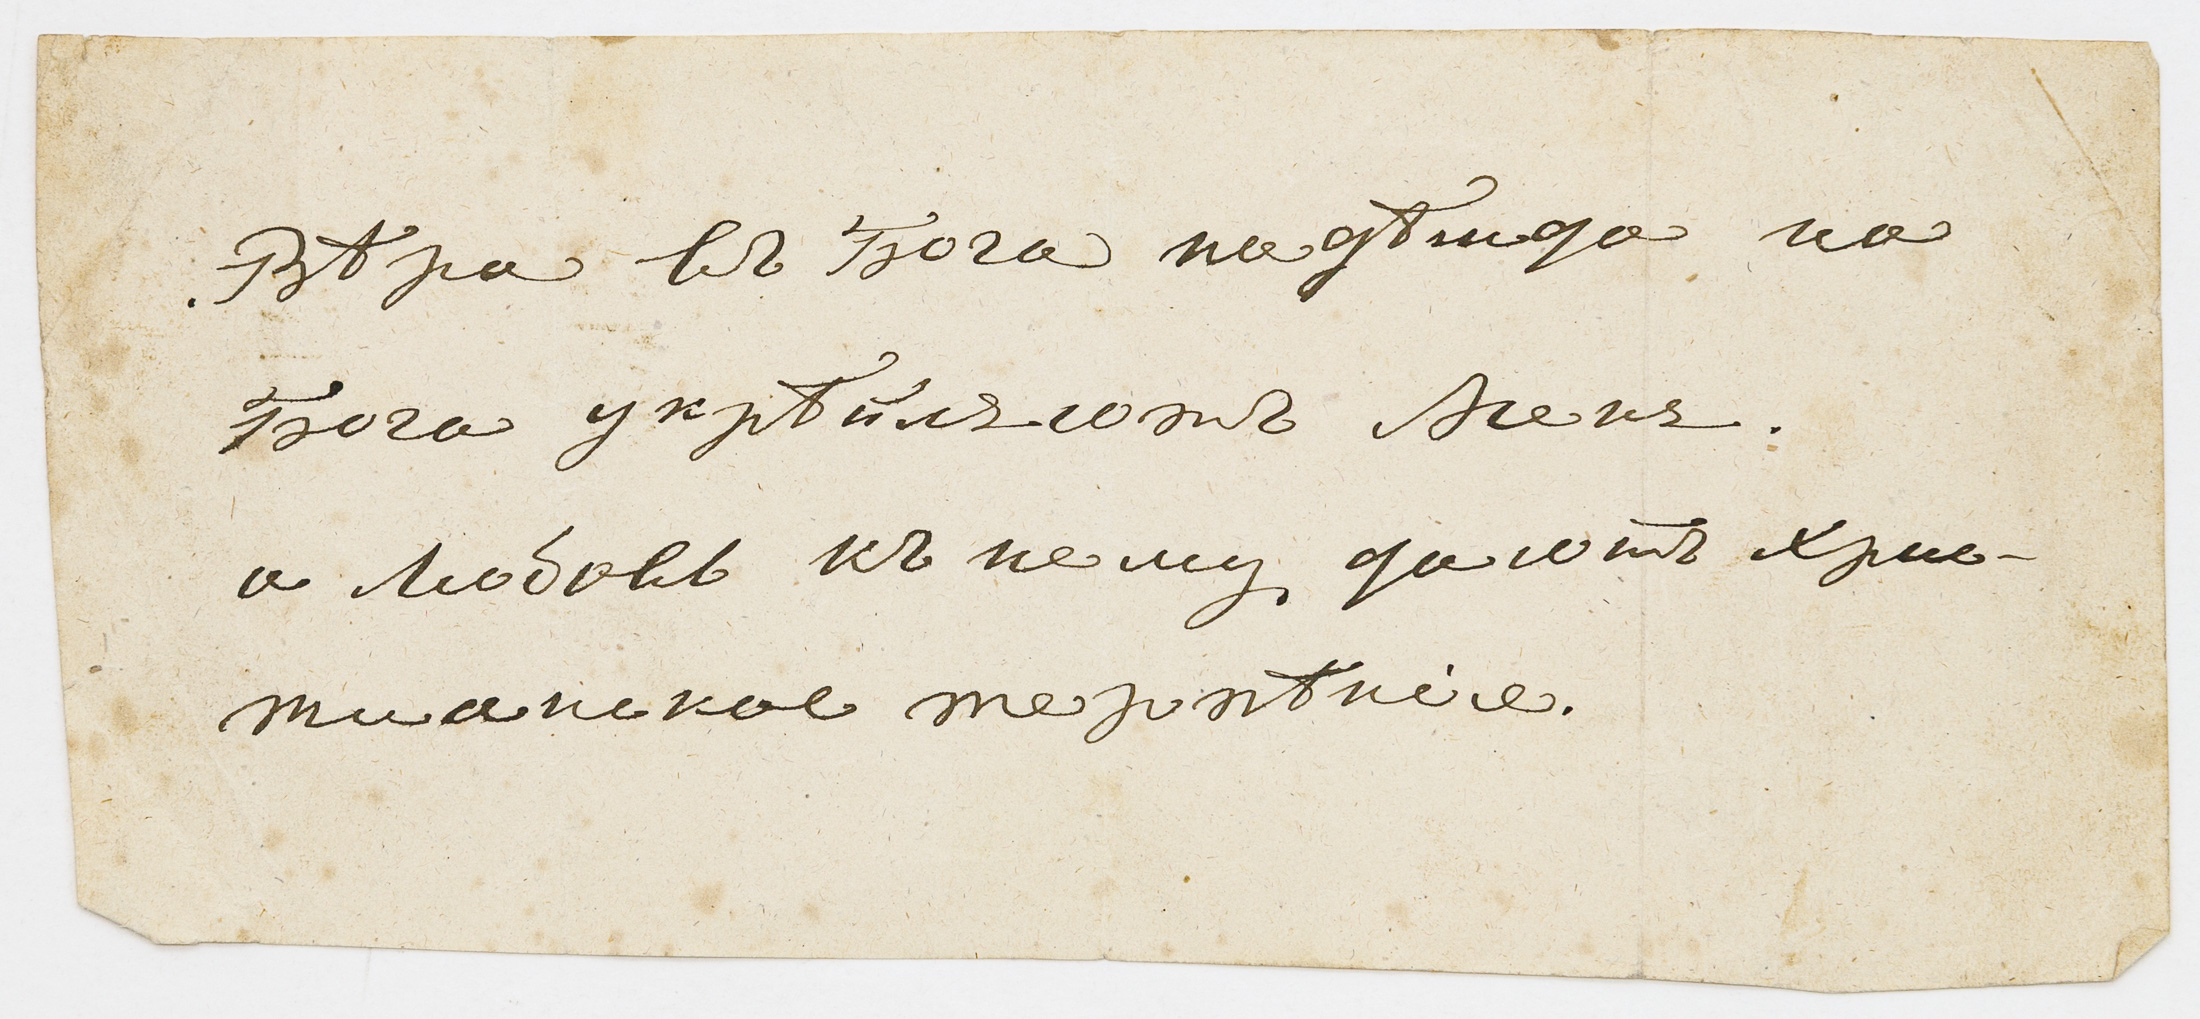 Вѣра въ Бога надѣжда на
Бога укрѣпляютъ Меня.
а Любовь къ нему даютъ Хрис-
тианское терпѣніе.